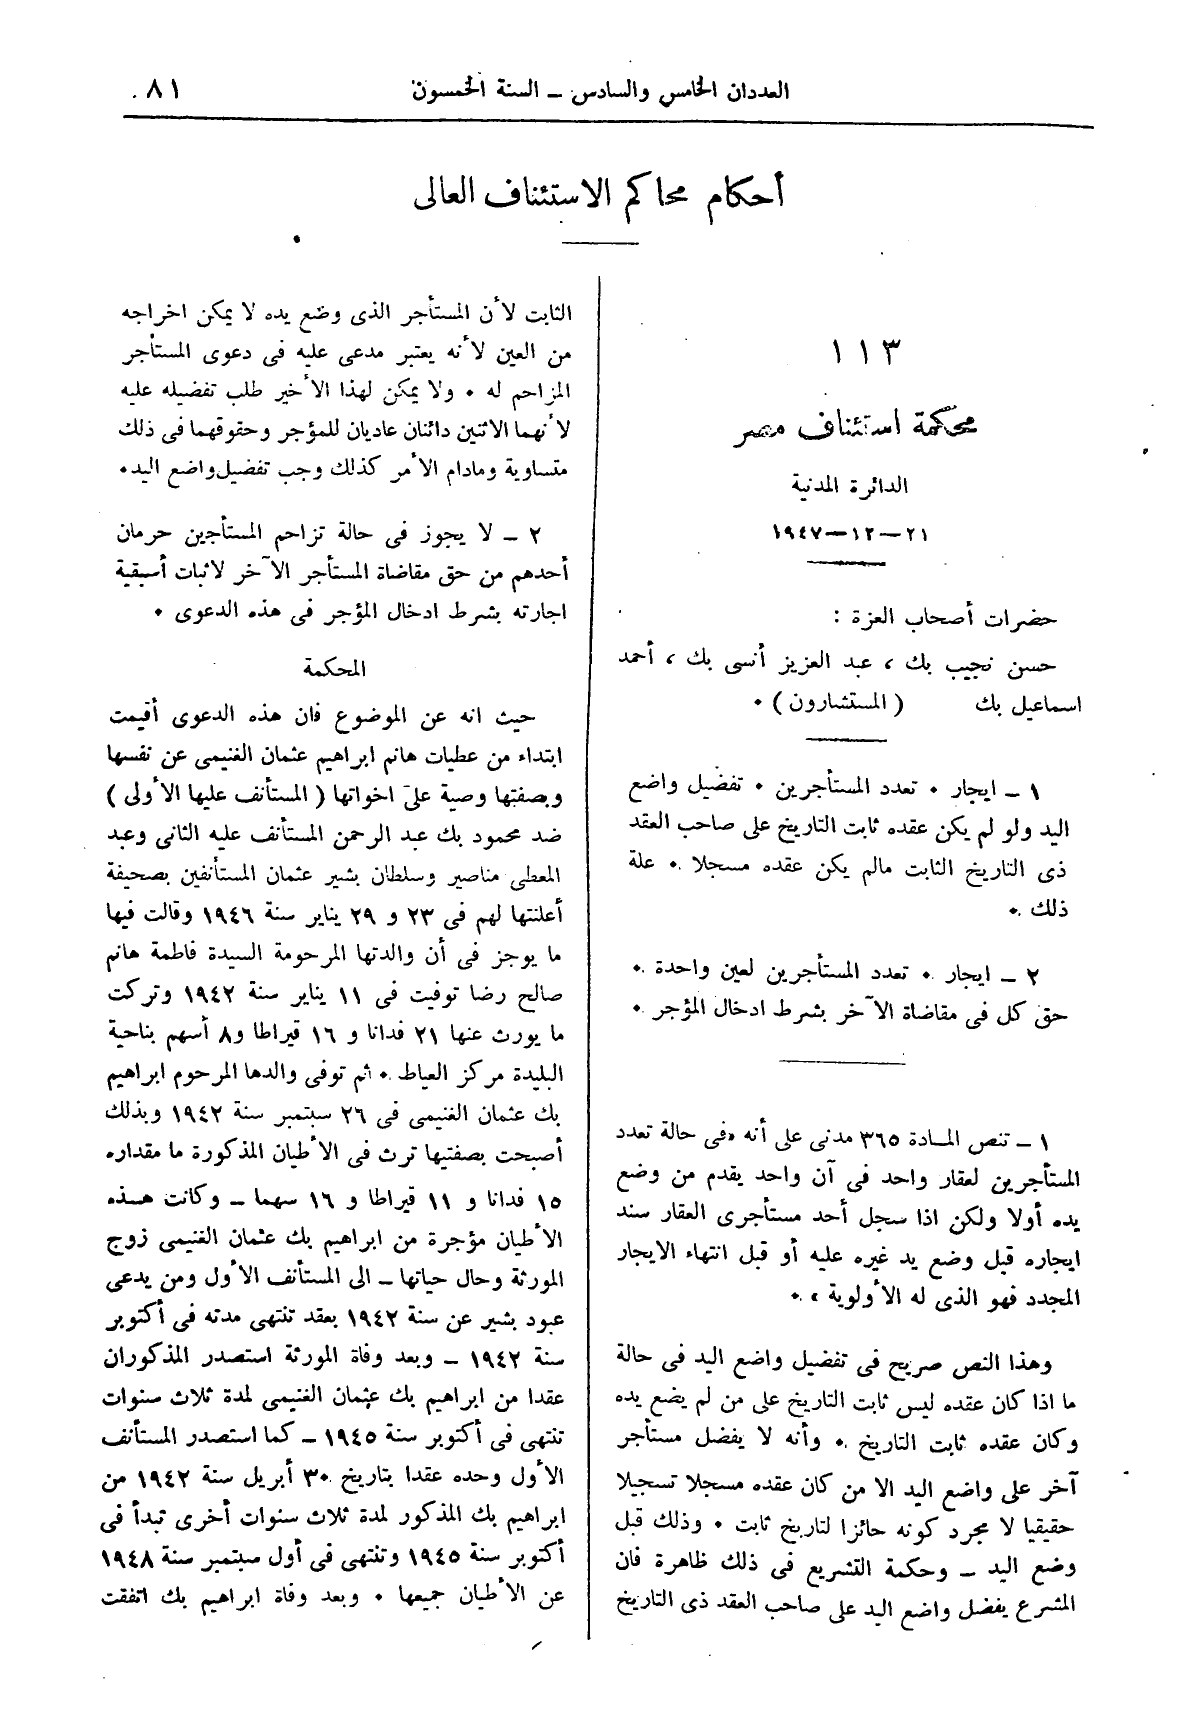 العددان الخامس والسادس – السنة الخمسون
٨١
أحكام محاكم الاستئناف العالى
١١٣
محكمة استئناف مصر
الدائرة المدنية
٢١–١٢–١٩٤٧
حضرات أصحاب العزة :
حسن نجيب بك ، عبد العزيز أنسى بك ، أحمد
اسماعيل بك ( المستشارون ) .
١ – ايجار . تعدد المستأجرين . تفضيل واضع
اليد ولو لم يكن عقده ثابت التاريخ على صاحب العقد
ذى التاريخ الثابت مالم يكن عقده مسجلا . علة
ذلك .
٢ – ايجار . تعدد المستأجرين لعين واحدة .
حق كل فى مقاضاة الآخر بشرط ادخال المؤجر .
١ – تنص المادة ٣٦٥ مدنى على أنه «فى حالة تعدد
المستأجرين لعقار واحد فى آن واحد يقدم من وضع
يده أولا ولكن اذا سجل أحد مستأجرى العقار سند
ايجاره قبل وضع يد غيره عليه أو قبل انتهاء الايجار
المجدد فهو الذى له الأولوية » .
وهذا النص صريح فى تفضيل واضع اليد فى حالة
ما اذا كان عقده ليس ثابت التاريخ على من لم يضع يده
وكان عقده ثابت التاريخ . وأنه لا يفضل مستأجر
آخر على واضع اليد الا من كان عقده مسجلا تسجيلا
حقيقيا لا مجرد كونه حائزا لتاريخ ثابت . وذلك قبل
وضع اليد – وحكمة التشريع فى ذلك ظاهرة فان
المشرع يفضل واضع اليد على صاحب العقد ذى التاريخ
الثابت لأن المستأجر الذى وضع يده لا يمكن اخراجه
من العين لأنه يعتبر مدعى عليه فى دعوى المستأجر
المزاحم له . ولا يمكن لهذا الأخير طلب تفضيله عليه
لأنهما الاثنين دائنان عاديان للمؤجر وحقوقهما فى ذلك
متساوية ومادام الأمر كذلك وجب تفضيل واضع اليد.
٢ – لا يجوز فى حالة تزاحم المستأجين حرمان
أحدهم من حق مقاضاة المستأجر الآخر لاثبات أسبقية
اجارته بشرط ادخال المؤجر فى هذه الدعوى .
المحكمة
حيث انه عن الموضوع فان هذه الدعوى أقيمت
ابتداء من عطيات هانم ابراهيم عثمان الغنيمى عن نفسها
وبصفتها وصية على اخواتها ( المستأنف عليها الأولى )
ضد محمود بك عبد الرحمن المستأنف عليه الثانى وعبد
المعطى مناصير وسلطان بشير عثمان المستأنفين بصحيفة
أعلنتها لهم فى ٢٣ و ٢٩ يناير سنة ١٩٤٦ وقالت فيها
ما يوجز فى أن والدتها المرحومة السيدة فاطمة هانم
صالح رضا توفيت فى ١١ يناير سنة ١٩٤٢ وتركت
ما يورث عنها ٢١ فدانا و ١٦ قيراطا و٨ أسهم بناحية
البليدة مركز العياط . ثم توفى والدها المرحوم ابراهيم
بك عثمان الغنيمى فى ٢٦ سبتمبر سنة ١٩٤٢ وبذلك
أصبحت بصفتيها ترث فى الأطيان المذكورة ما مقداره
١٥ فدانا و ١١ قيراطا و ١٦ سهما – وكانت هذه
الأطيان مؤجرة من ابراهيم بك عثمان الغنيمى زوج
المورثة وحال حياتها – الى المستأنف الأول ومن يدعى
عبود بشير عن سنة ١٩٤٢ بعقد تنتهى مدته فى أكتوبر
سنة ١٩٤٢ – وبعد وفاة المورثة استصدر المذكوران
عقدا من ابراهيم بك عثمان الغنيمى لمدة ثلاث سنوات
تنتهى فى أكتوبر سنة ١٩٤٥ – كما استصدر المستأنف
الأول وحده عقدا بتاريخ ٣٠ أبريل سنة ١٩٤٢ من
ابراهيم بك المذكور لمدة ثلاث سنوات أخرى تبدأ فى
أكتوبر سنة ١٩٤٥ وتنتهى فى أول سبتمبر سنة ١٩٤٨
عن الأطيان جميعها . وبعد وفاة ابراهيم بك اتفقت